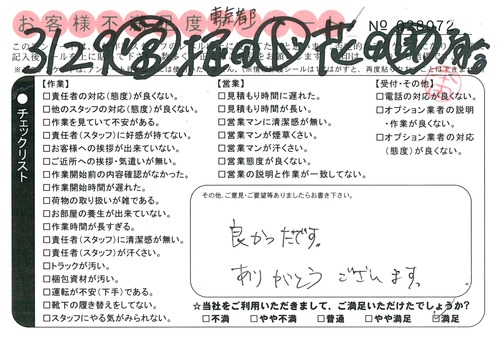 お客様不満足度
東京都
No 028072
3/29
チェックリスト
【作業】
□責任者の対応(態度)が良くない。
□他のスタッフの対応(態度)が良くない。
□作業を見ていて不安がある。
□責任者(スタッフ)に好感が持てない。
□お客様への挨拶が出来ていない。
□ご近所への挨拶・気遣いが無い。
□作業開始前の内容確認がなかった。
□作業開始時間が遅れた。
□荷物の取り扱いが雑である。
□お部屋の養生が出来ていない。
□作業時間が長すぎる。
□責任者(スタッフ)に清潔感が無い。
□責任者(スタッフ)が汗くさい。
□トラックが汚い。
□梱包資材が汚い。
□運転が不安(下手)である。
□靴下の履き替えをしてない。
□スタッフにやる気がみられない。
【営業】
□見積もり時間に遅れた。
□見積もり時間が長い。
□営業マンに清潔感が無い。
□営業マンが煙草くさい。
□営業マンが汗くさい。
□営業態度が良くない。
□営業の説明と作業が一致してない。
【受付・その他】
□電話の対応が良くない。
□オプション業者の説明
・作業が良くない。
□オプション業者の対応
(態度)が良くない。
その他、ご意見・ご要望等ありましたらお書き下さい。
良かったです。
ありがとうございます。
☆当社をご利用いただきまして、ご満足いただけたでしょうか?
□不満 □やや不満 □普通 □やや満足 ☑満足